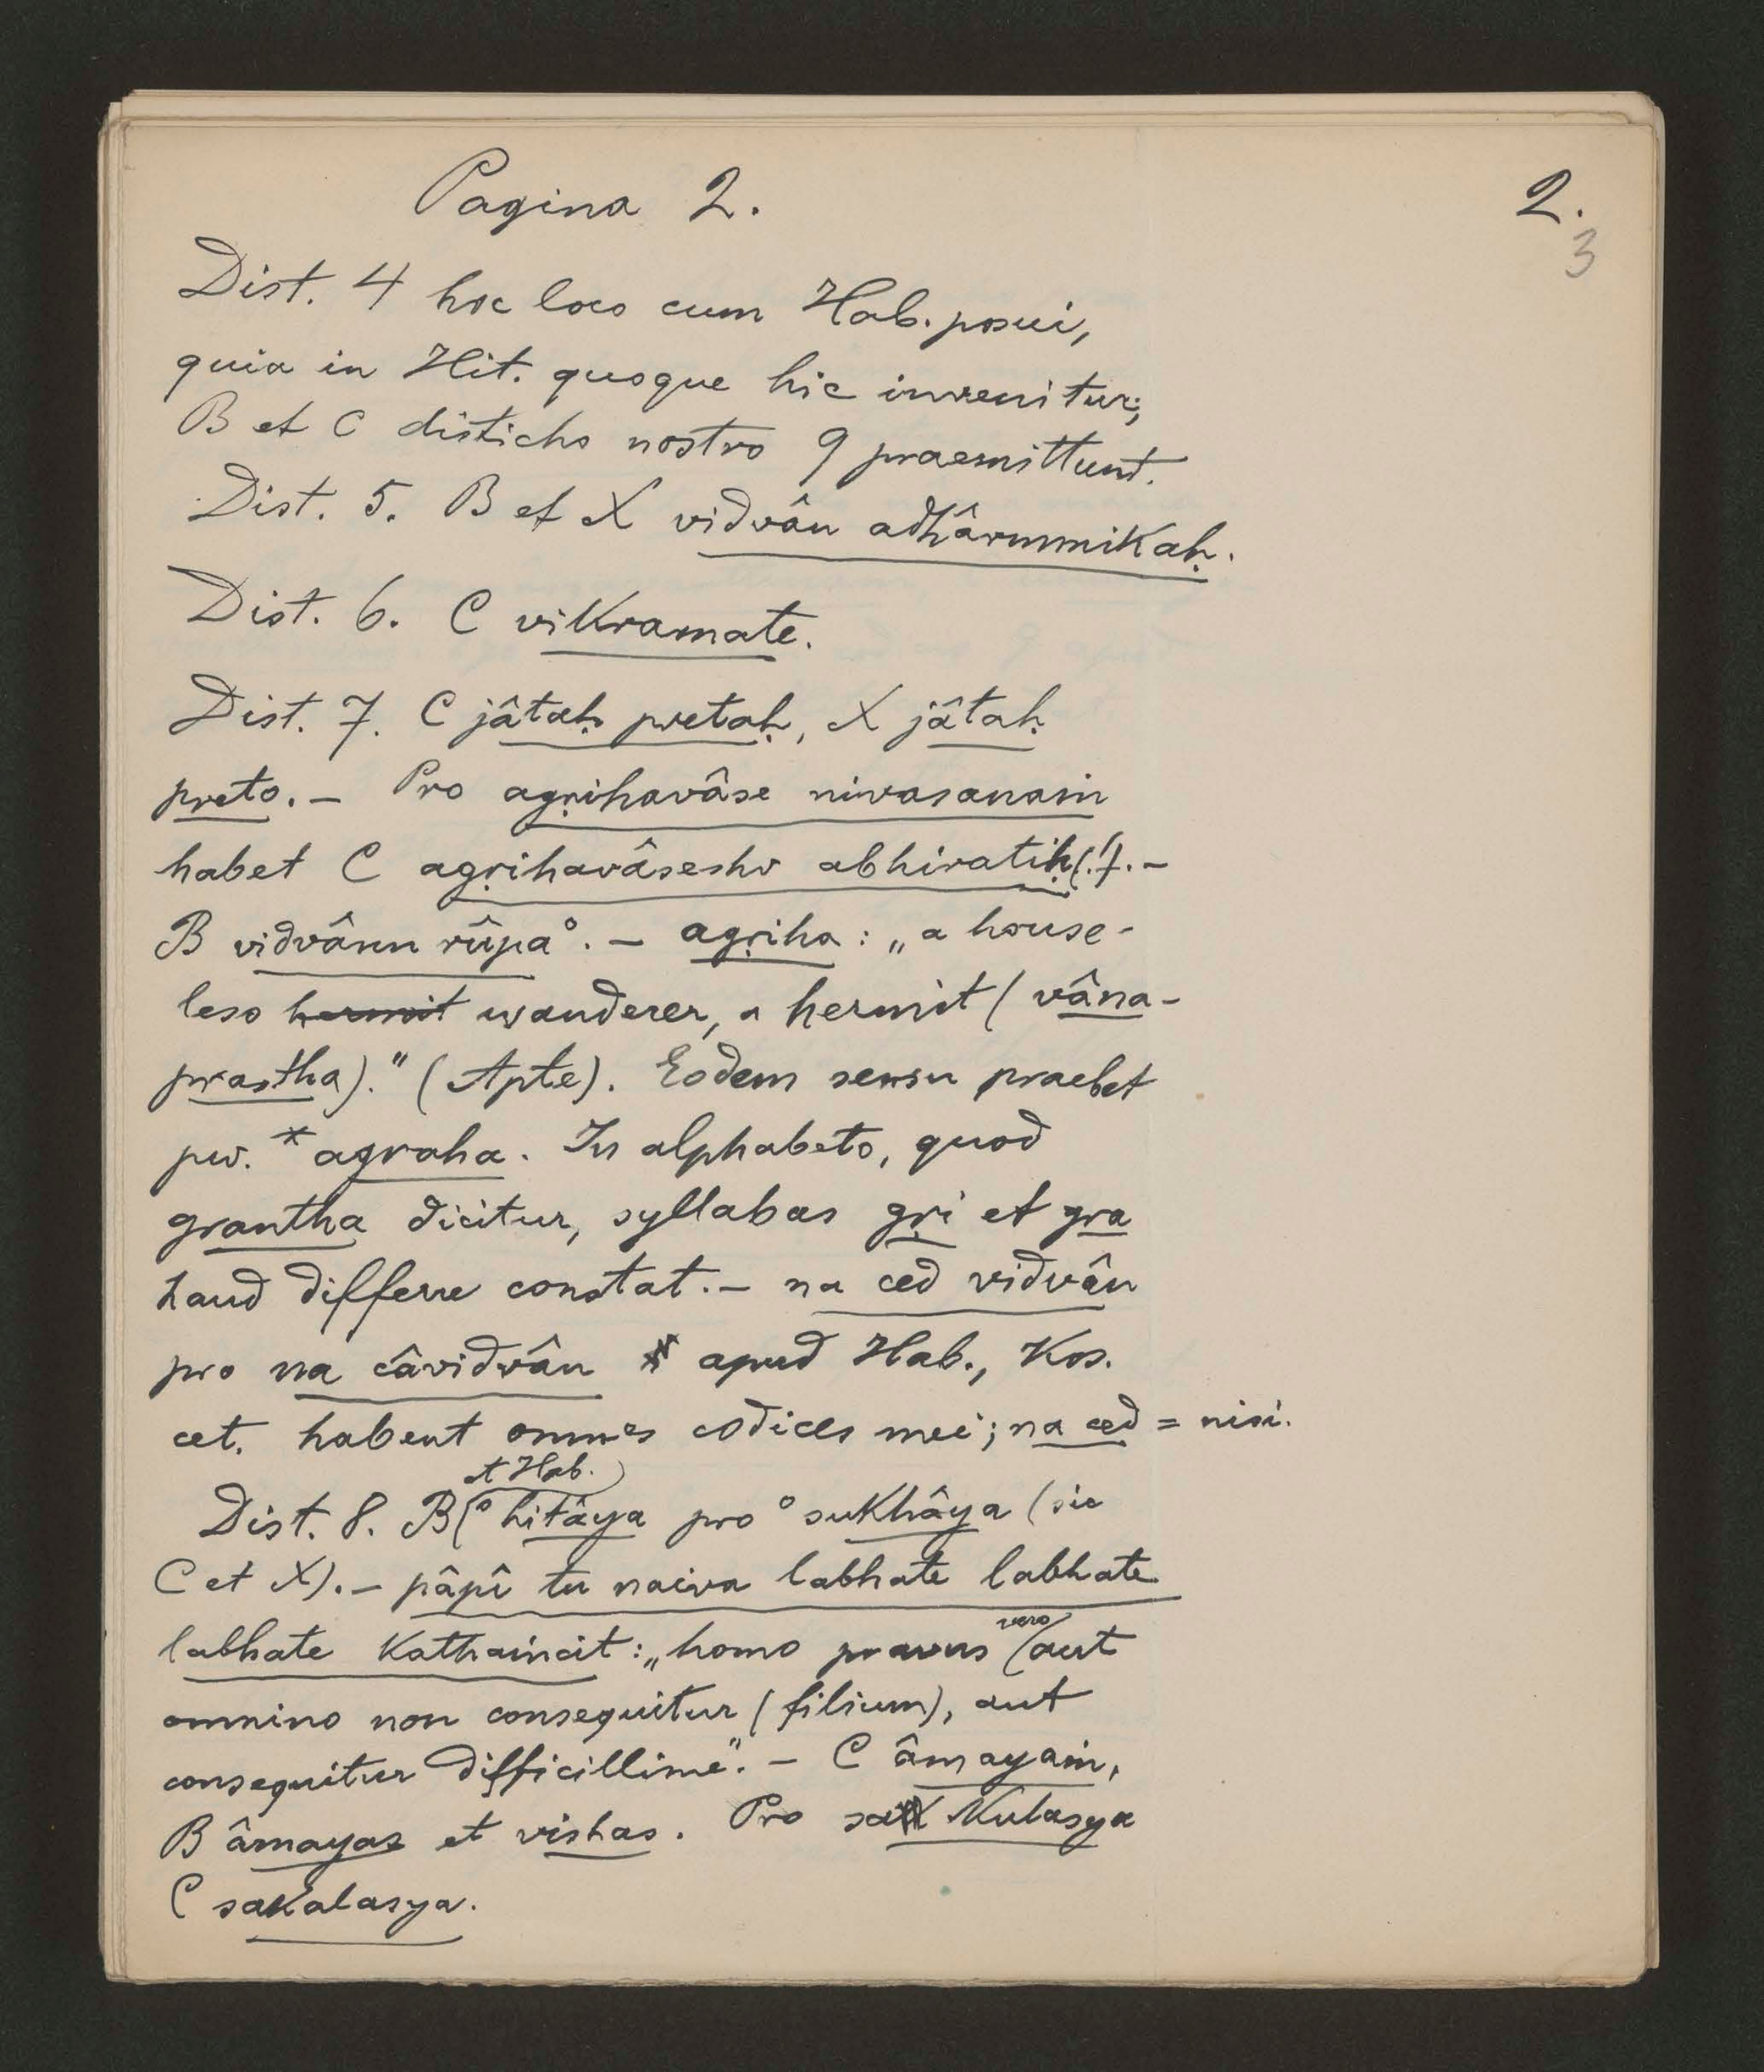 Pagina 2.
2.
3
Dist. 4 hoc loco cum Hab. posui,
quia in Hit. quoque hic invenitur;
B et C disticho nostro 9 praemittunt.
Dist. 5. B et X vidvân adhârmmikaḥ.
Dist. 6. C vikramate.
Dist. 7. C jâtaḥ pretaḥ, X jâtaḥ
preto. – Pro agṛihavâse nivasanaṁ
habet C agṛihavâseshv abhiratiḥ (!). –
B vidvânn rûpa°. – agṛiha: „a house-
less hermit wanderer, a hermit (vâna-
prastha)." (Apte). Eodem sensu praebet
pw. *agraha. In alphabeto, quod
grantha dicitur, syllabas gṛi et gra
haud differre constat. – na ced vidvân
pro na câvidvân apud Hab., Kos.
cet. habent omnes codices mei; na ced = nisi.
et Hab.
Dist. 8. B (°hitâya pro °sukhâya (sic
C et X). – pâpî tu naiva labhate labhate
vero
labhate kathaṁcit: „homo pravus (aut
omnino non consequitur (filium), aut
consequitur difficillime". – C âmayaṁ,
B âmayas et vishas. Pro sa kulasya
C sakalasya.